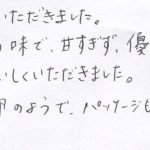 いただきました。
味で、甘すぎず、優
いしくいただきました。
のようで、パッケージも